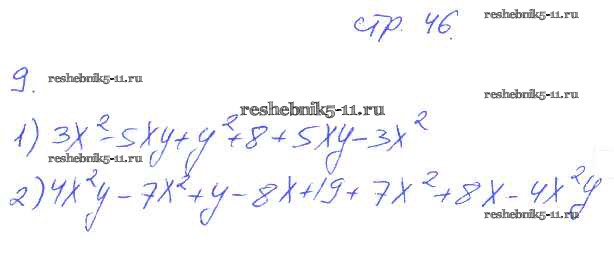 стр. 46.
reshebnik5-11.ru
9.
reshebnik5-11.ru
reshebnik5-11.ru
reshebnik5-11.ru
1) 3x²-5xy+y²+8+5xy-3x²
reshebnik5-11.ru
2) 4x²y-7x²+y-8x+19+7x²+8x-4x²y
reshebnik5-11.ru